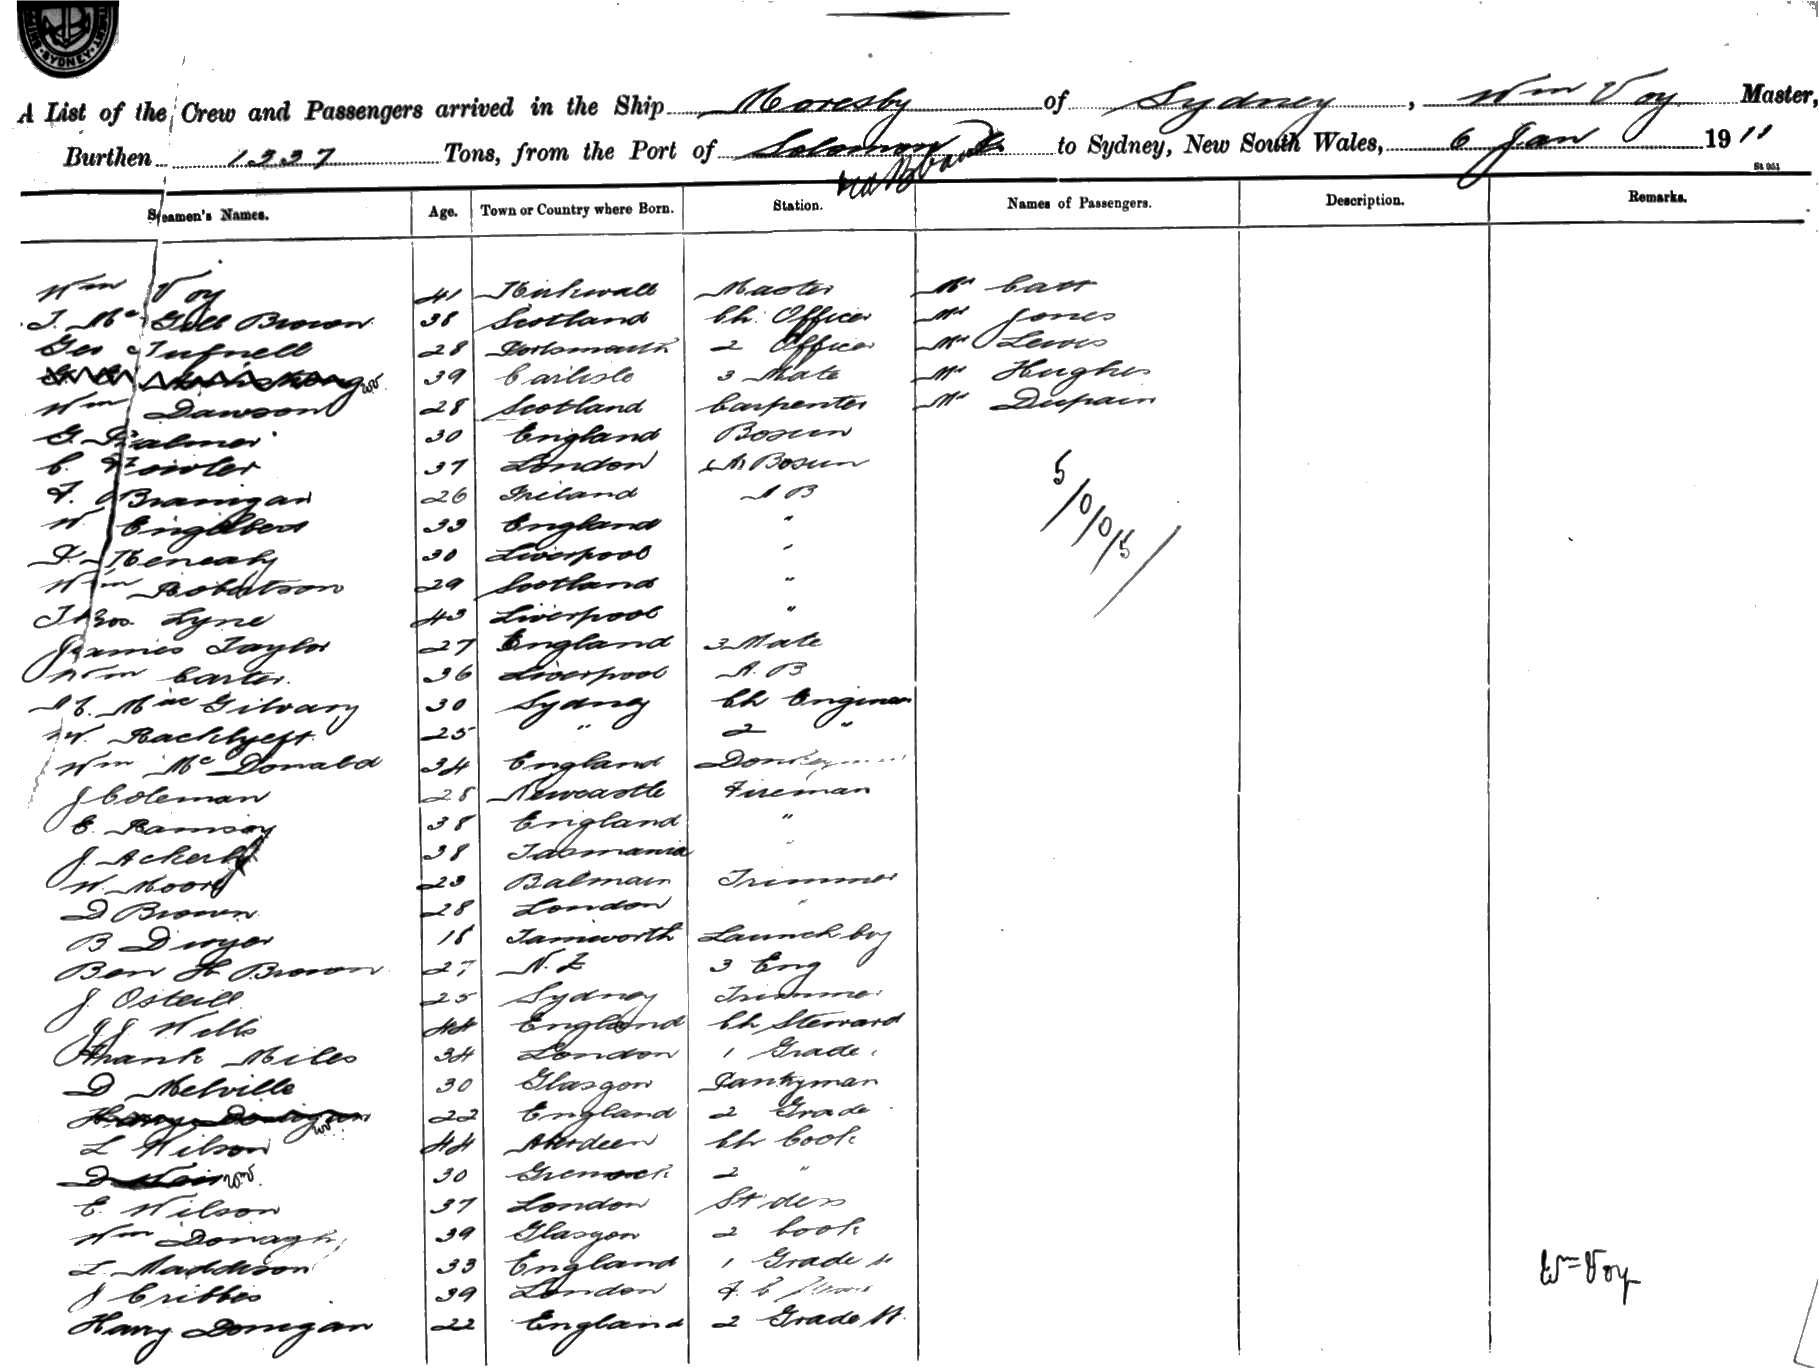 SYDNEY
A List of the Crew and Passengers arrived in the Ship Moresby of Sydney, Wm Voy Master,
Burthen 1337 Tons, from the Port of Solomon Is to Sydney, New South Wales, 6 Jan 1911
via Brisbane
St 951
Seamen's Names. Age. Town or Country where Born. Station. Names of Passengers. Description. Remarks.
Wm Voy 41 Kirkwall Master Mr Carr
J. Mc Gill Brown 38 Scotland Ch. Officer Mr Jones
Geo Tufnell 28 Portsmouth 2 Officer Mr Lewis
39 Carlisle 3 Mate Mr Hughes
Wm Dawson 28 Scotland Carpenter Mr Dupain
G. Palmer 30 England Bosun
C. Fowler 37 London Bosun
F. Branigan 26 Ireland A B
W. Engelbert 33 England "
P. Keneally 30 Liverpool "
Wm Robertson 29 Scotland "
Thos. Lyne 43 Liverpool "
5/0/0/5/
James Taylor 27 England 3 Mate
Wm Carter. 36 Liverpool A. B
A C. Mac Gilvary 30 Sydney Ch Engineer
W. 25 " 2 "
Wm Mc Donald 34 England Donkeyman
J Coleman 28 Newcastle Fireman
E. Ramsay 38 England "
J. Ackerly 38 Tasmania "
W. Moore 23 Balmain Trimmer
D Brown 28 London "
B Dwyer 18 Tamworth Launch boy
Ben H Brown 27 N. Z 3 Eng
J. Osteill 25 Sydney Trimmer
J J Wells 44 England Ch Steward
Frank Miles 34 London 1 Grade
D Melville 30 Glasgow Pantryman
Harry Donegan 22 England 2 Grade
L Wilson 44 Aberdeen Ch Cook
D Weir 30 Greenock 2 "
E. Wilson 37 London Stdess
Wm Donagh 39 Glasgow 2 Cook
L. Maddison 33 England 1 Grade
J Cribbes 39 London F. C
Harry Donegan 22 England 2 Grade St.
Wm Voy